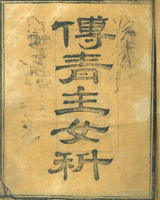 傅青主女科